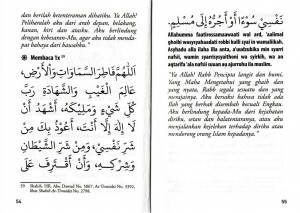 dan berilah ketenteraman dihatiku. Ya Allah!
Peliharalah aku dari arah depan, belakang,
kanan, kiri dan atasku. Aku berlindung
dengan kebesaran-Mu, agar aku tidak menda-
pat bahaya dari bawahku."
Membaca 1x
اَللَّهُمَّ فَاطِرَ السَّمَاوَاتِ وَالْأَرْضِ،
عَالِمَ الْغَيْبِ وَالشَّهَادَةِ رَبَّ
كُلِّ شَيْءٍ وَمَلِيْكَهُ، أَشْهَدُ أَنْ
لاَ إِلَـهَ إِلاَّ أَنْتَ، أَعُوْذُ بِكَ مِنْ
شَرِّ نَفْسِيْ، وَمِنْ شَرِّ الشَّيْطَانِ
وَشِرْكِهِ، وَأَنْ أَقْتَرِفَ عَلَى
Shahih, HR. Abu Dawud No. 5067, At-Tirmidzi No. 3392,
54
نَفْسِيْ سُوْءًا أَوْ أَجُرَّهُ إِلَى مُسْلِمٍ.
Allahumma faatirossamaawaati wal ard, 'aalimal
ghoibi wasysyahaadati robbi kulli syai in wamaliikah.
Asyhadu allaa ilaaha illa anta, a'uudzubika min syarri
nafsii, wamin syarrisysyaithooni wa syirkih, wa an
aqtarifa 'ala nafsii suuan au ajurrahu ila muslim.
"Ya Allah! Rabb Pencipta langit dan
bumi. Yang Maha Mengetahui yang ghaib dan
yang nyata, Rabb segala sesuatu dan yang
merajainya. Aku bersaksi bahwa tidak ada
ilah yang berhak disembah kecuali Engkau.
Aku berlindung kepada-Mu dari kejahatan
diriku, setan dan balatentaranya, atau aku
menjalankan kejelekan terhadap diriku atau
mendorong orang Islam padanya."
55